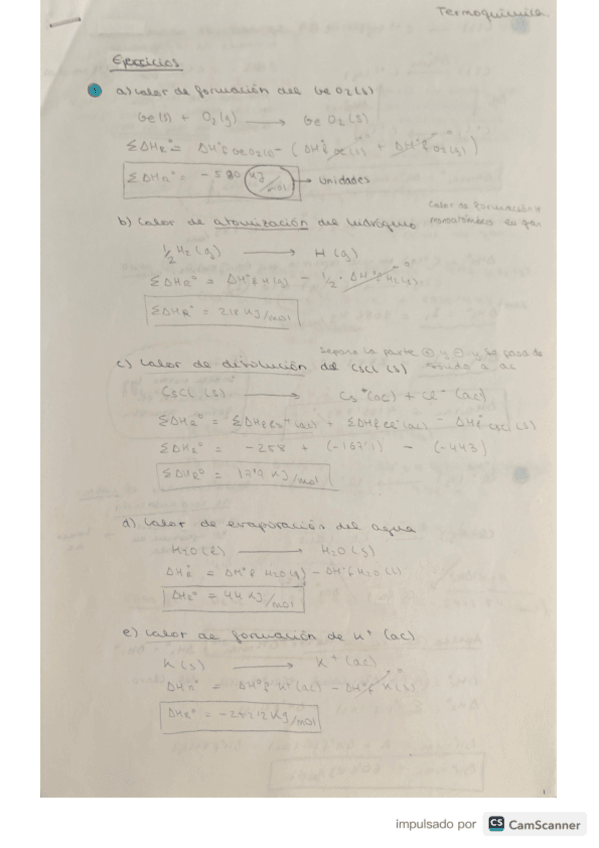 Termoquímica
Ejercicios
a) Calor de formación del GeO2(s)
Ge(s) + O2(g) → GeO2(s)
ΣΔHR° = ΔH°f GeO2(s) - (ΔH°f Ge(s) + ΔH°f O2(g))
ΣΔHR° = -580 KJ/mol → Unidades
b) Calor de atomización del hidrógeno
1/2 H2(g) → H(g)
ΣΔHR° = ΔH°f H(g) - 1/2 · ΔH°f H2(g) 0
ΣΔHR° = 218 KJ/mol
Separo la parte ⊕ y ⊖ y
c) Calor de disolución del CsCl(s) a ac
CsCl(s) → Cs+(ac) + Cl-(ac)
ΣΔHR° = ΣΔHf Cs+(ac) + ΣΔHf Cl-(ac) - ΔHf CsCl(s)
ΣΔHR° = -258 + (-167'1) - (-443)
ΣΔHR° = KJ/mol
d) Calor de evaporación del agua
H2O(l) → H2O(g)
ΔHR° = ΔH°f H2O(g) - ΔH°f H2O(l)
ΔHR° = 44 KJ/mol
e) Calor de formación de K+(ac)
K(s) → K+(ac)
ΔHR° = ΔH°f K+(ac) - ΔH°f K(s) 0
ΔHR° = KJ/mol
impulsado por CS CamScanner